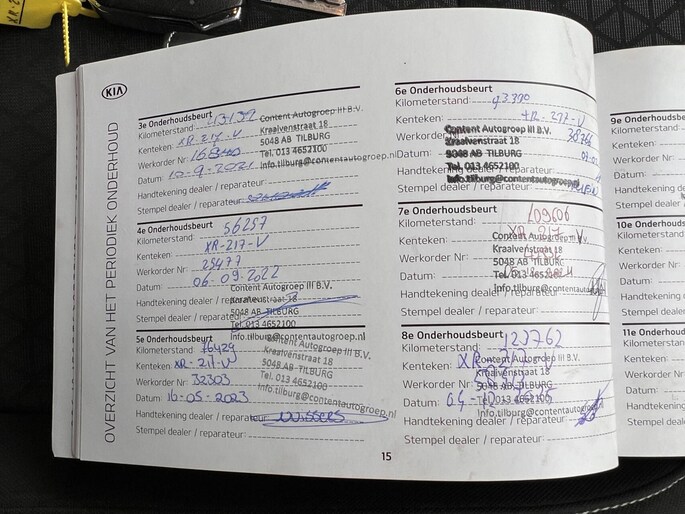 XR-
KIA
OVERZICHT VAN HET PERIODIEK ONDERHOUD
3e Onderhoudsbeurt
Kilometerstand 43132
Kenteken: XR-217-V
Werkorder Nr: 16840
Datum: 10-9-2021
Handtekening dealer / reparateur:
Stempel dealer / reparateur:
Content Autogroep III B.V.
Kraaivenstraat 18
5048 AB TILBURG
Tel. 013 4652100
Info.tilburg@contentautogroep.nl
4e Onderhoudsbeurt
Kilometerstand: 56257
Kenteken: XR-217-V
Werkorder Nr: 25477
Datum: 06-09-2022
Handtekening dealer / reparateur
Stempel dealer / reparateur
Content Autogroep III B.V.
Kraaivenstraat 18
5048 AB TILBURG
Tel. 013 4652100
Info.tilburg@contentautogroep.nl
5e Onderhoudsbeurt
Kilometerstand 76429
Kenteken: XR-217-V
Werkorder Nr: 32303
Datum: 16-05-2023
Handtekening dealer / reparateur:
Stempel dealer / reparateur:
Content Autogroep III B.V.
Kraaivenstraat 18
5048 AB TILBURG
Tel. 013 4652100
Info.tilburg@contentautogroep.nl
6e Onderhoudsbeurt
Kilometerstand: 93390
Kenteken: XR-217-V
Werkorder Nr: 38766
Datum:
Handtekening dealer / reparateur:
Stempel dealer / reparateur:
Content Autogroep III B.V.
Kraaivenstraat 18
5048 AB TILBURG
Tel. 013 4652100
Info.tilburg@contentautogroep.nl
7e Onderhoudsbeurt
Kilometerstand: 109606
Kenteken: XR 217 V
Werkorder Nr:
Datum:
Handtekening dealer / reparateur:
Stempel dealer / reparateur:
Content Autogroep III B.V.
Kraaivenstraat 18
5048 AB TILBURG
Tel. 013 4652100
Info.tilburg@contentautogroep.nl
8e Onderhoudsbeurt
Kilometerstand: 123762
Kenteken: XR
Werkorder Nr:
Datum:
Handtekening dealer / reparateur:
Stempel dealer / reparateur:
Content Autogroep III B.V.
Kraaivenstraat 18
5048 AB TILBURG
Tel. 013 4652100
Info.tilburg@contentautogroep.nl
15
9e Onderhoud
Kilometerstand
Kenteken:
Werkorder Nr:
Datum:
Handtekening
Stempel deale
10e Onderhou
Kilometerstan
Kenteken:
Werkorder Nr
Datum:
Handtekenin
Stempel deal
11e Onderho
Kilometersta
Kenteken:
Werkorder N
Datum:
Handtekenin
Stempel dea